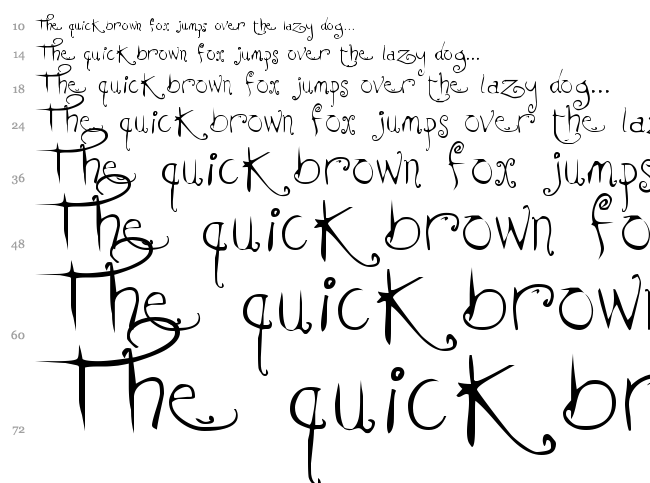 10 The quick brown fox jumps over the lazy dog...
14 The quick brown fox jumps over the lazy dog...
18 The quick brown fox jumps over the lazy dog...
24 The quick brown fox jumps over the la
36 The quick brown fox jumps
48 The quick brown fo
60 The quick brown
72 The quick br